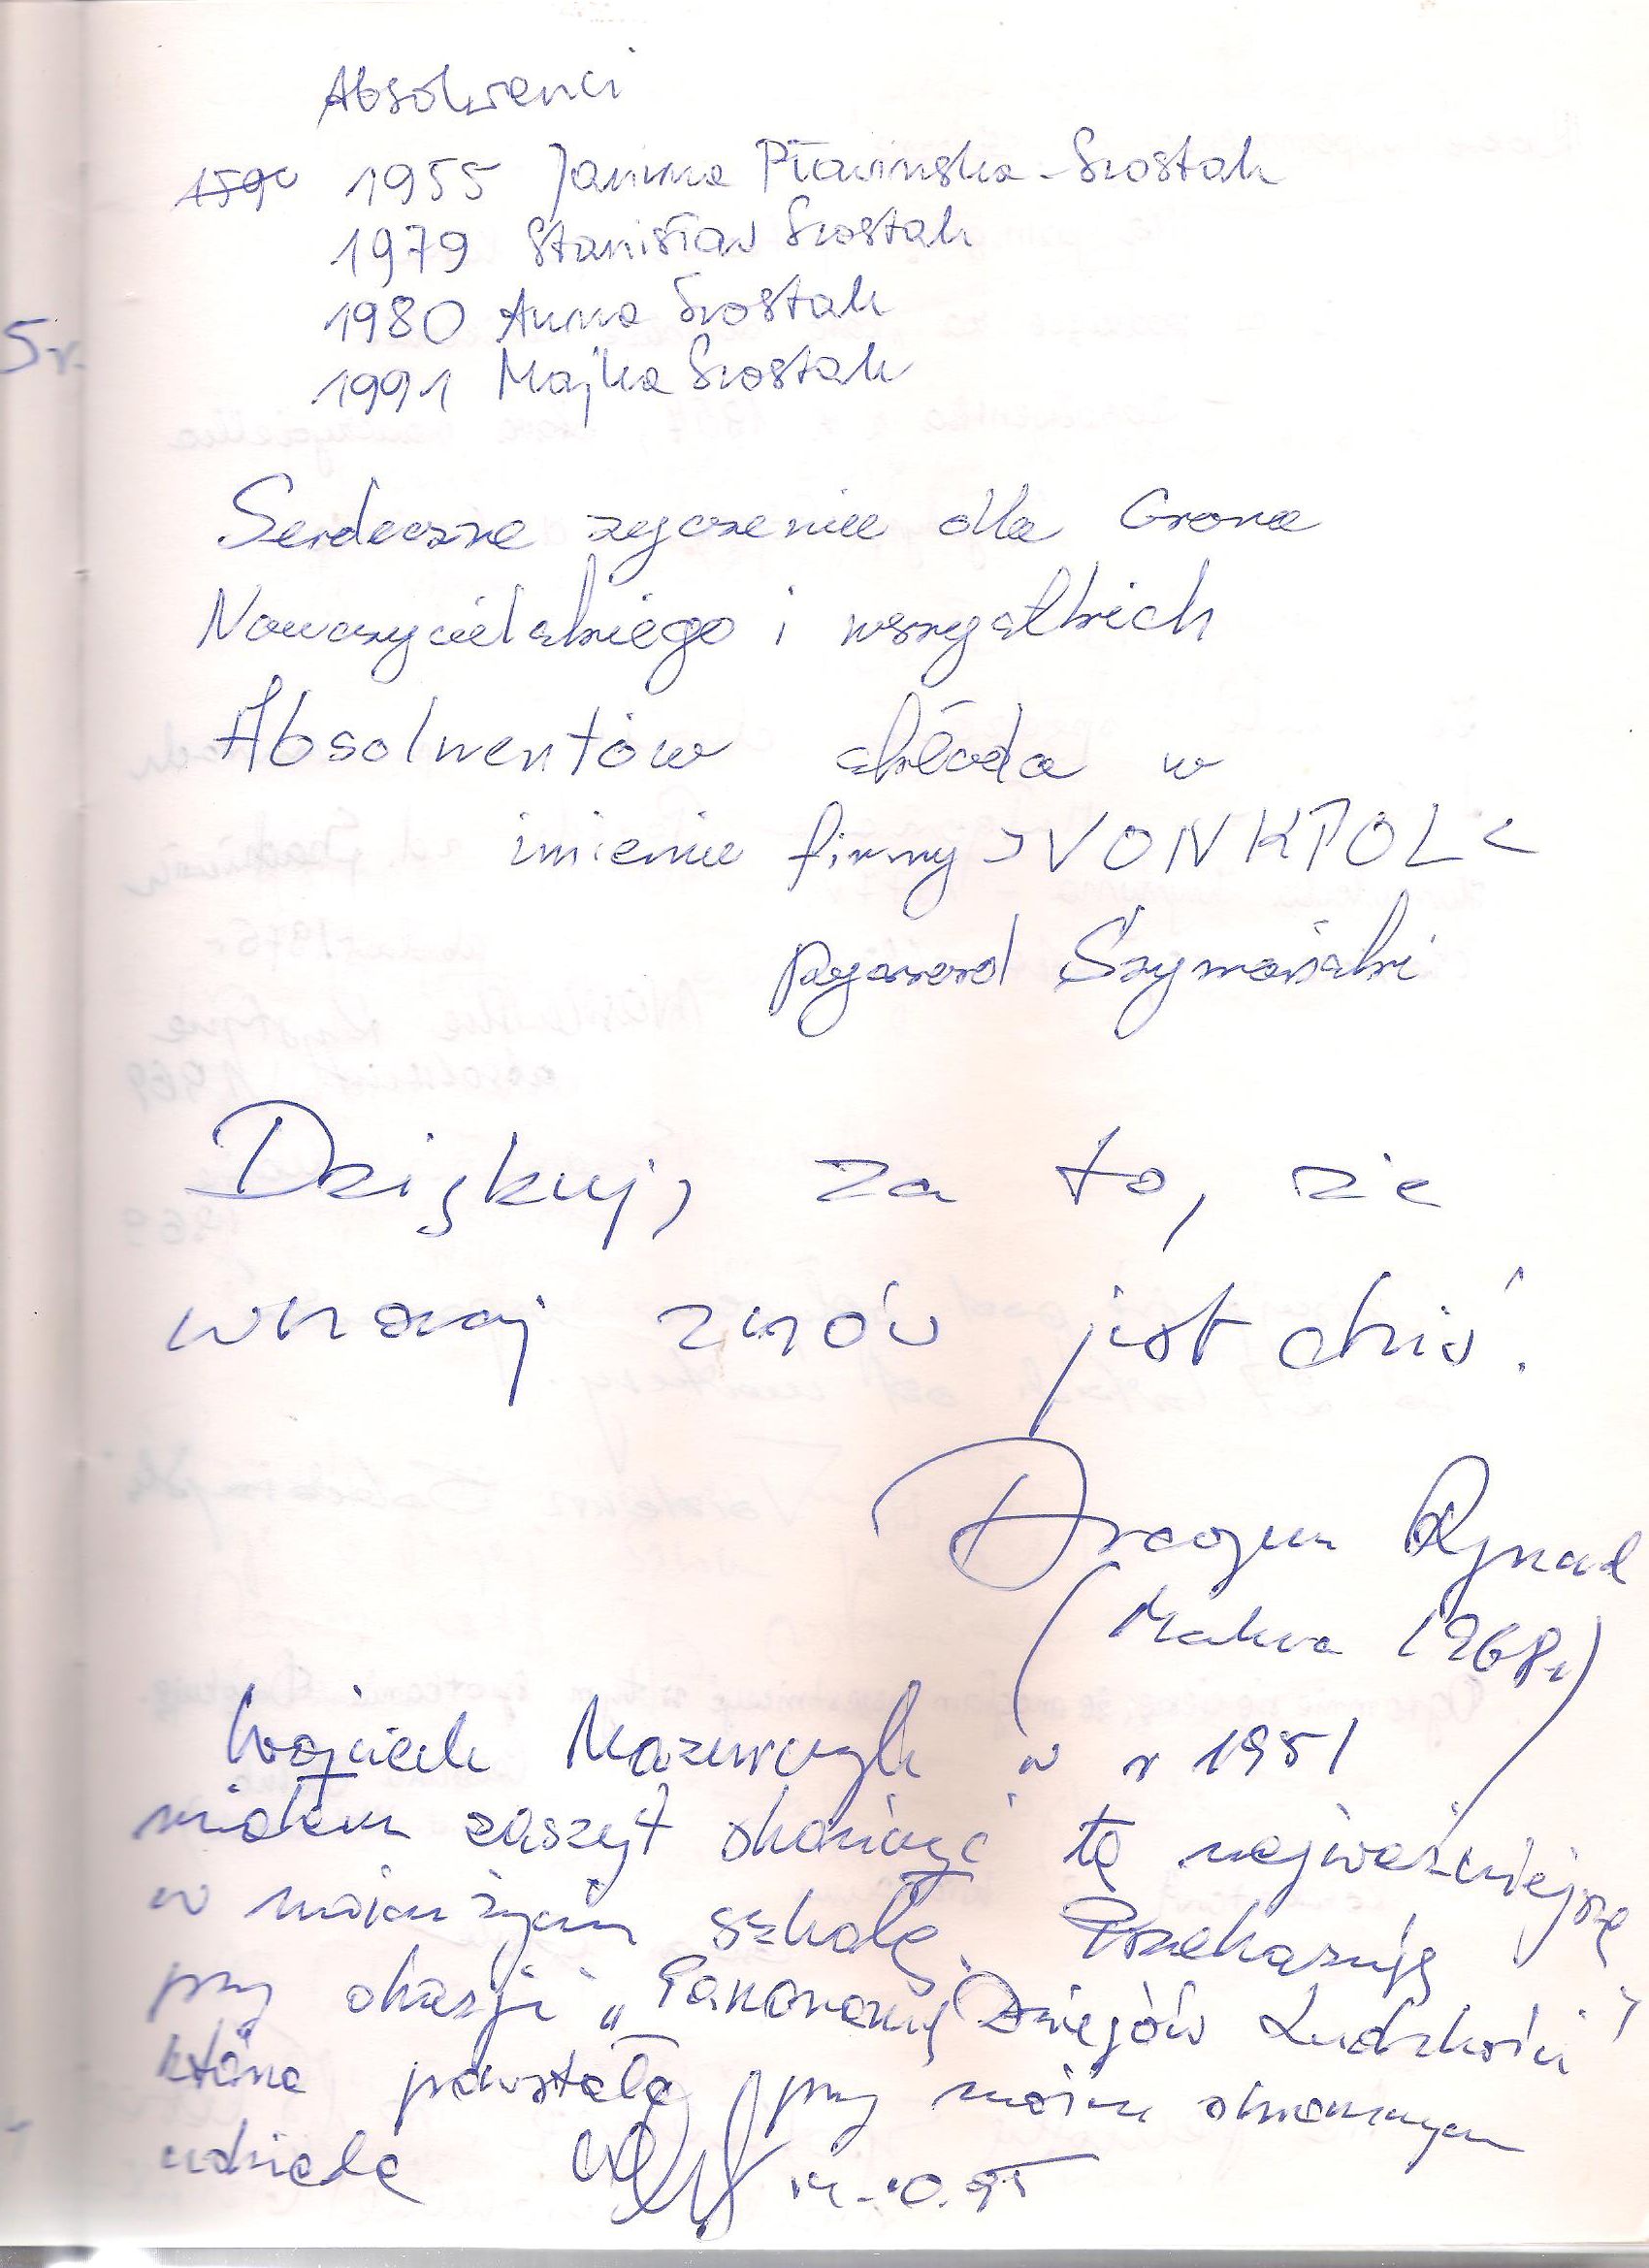 Absolwenci
1590 1955 Janina Pławińska-Szostak
1979 Stanisław Szostak
1980 Anna Szostak
5r.
1991 Majka Szostak
Serdeczne życzenia dla Grona
Nauczycielskiego i wszystkich
Absolwentów składa w
imieniu firmy >VONKPOL<
Ryszard Szymański
Dziękuję za to, że
wczoraj znów jest dziś!
Dragun Ryszard
(Matura 1968r)
Wojciech Mazurczyk w r 1951
miałem zaszyt skończyć tę najważniejszą
w moim życiu szkołę. Przekazuję
przy okazji „Panoramę Dziejów Ludzkości"
która powstała przy moim skromnym
udziale 14.10.95